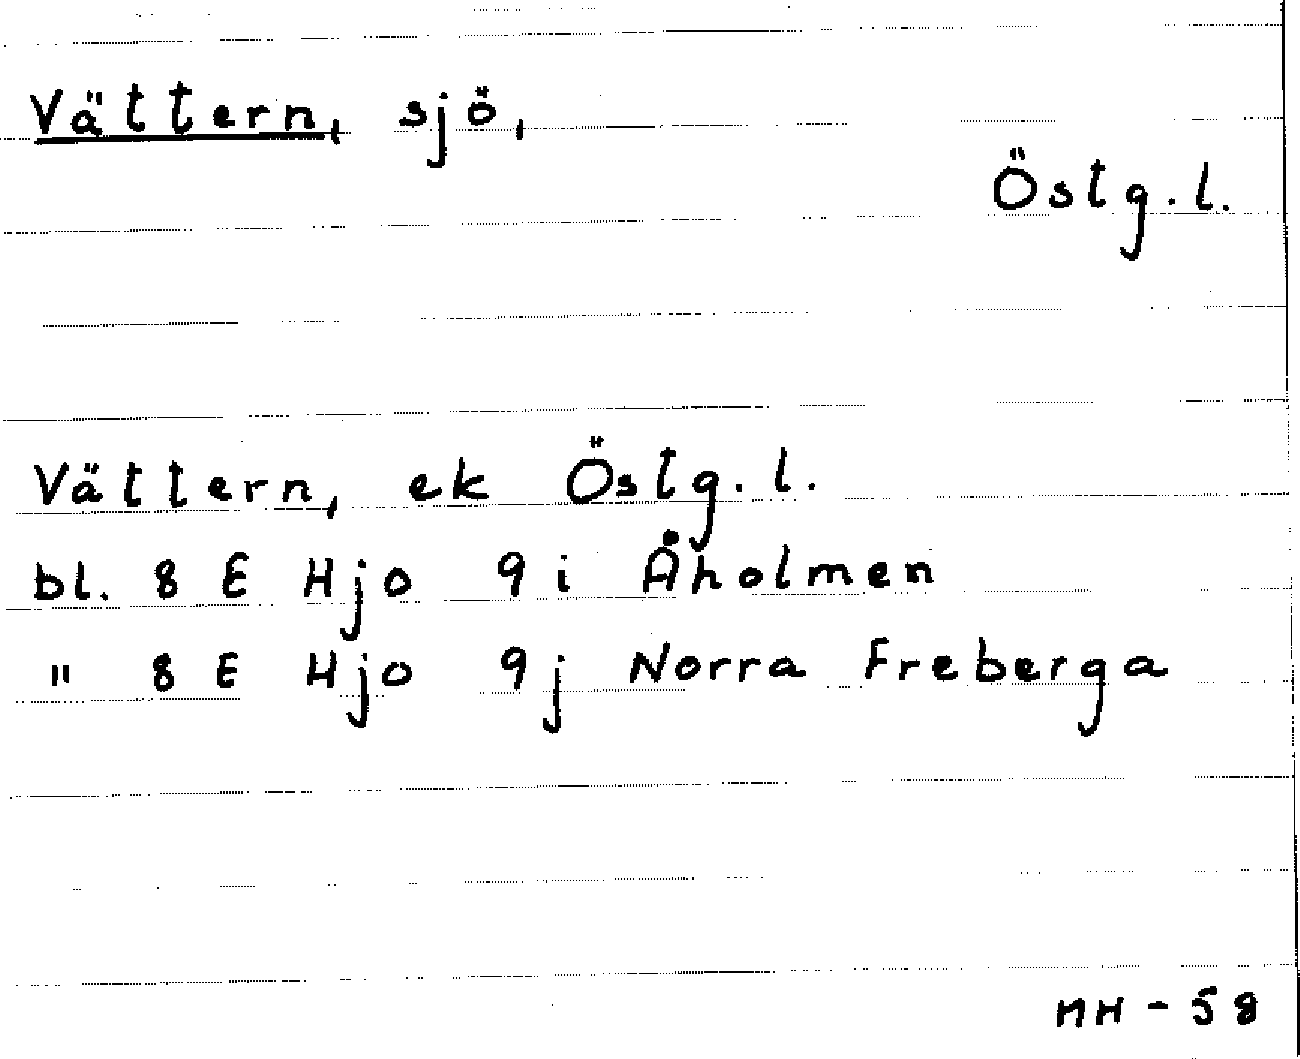 Vättern, sjö,
Östg.l.
Vättern, ek Östg.l.
bl. 8 E Hjo 9 i Åholmen
" 8 E Hjo 9 j Norra Freberga
MH - 58